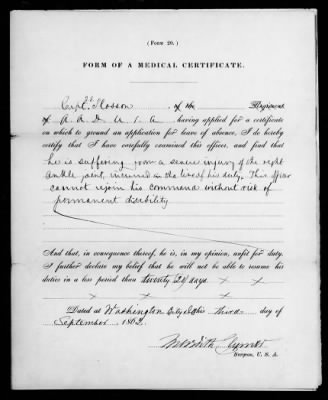 (Form 20.)
FORM OF A MEDICAL CERTIFICATE.
Capt. Slosson of the Regiment
of A. A. D. U. S. A. having applied for a certificate
on which to ground an application for leave of absence, I do hereby
certify that I have carefully examined this officer, and find that
he is suffering from a severe injury of the right
ankle joint, incurred in the line of his duty. This officer
cannot rejoin his command without risk of
permanent disability
And that, in consequence thereof, he is, in my opinion, unfit for duty.
I further declare my belief that he will not be able to resume his
duties in a less period than twenty days × ×
× × ×
Dated at Washington City this third day of
September 1862.
Meredith Clymer
Surgeon, U. S. A.